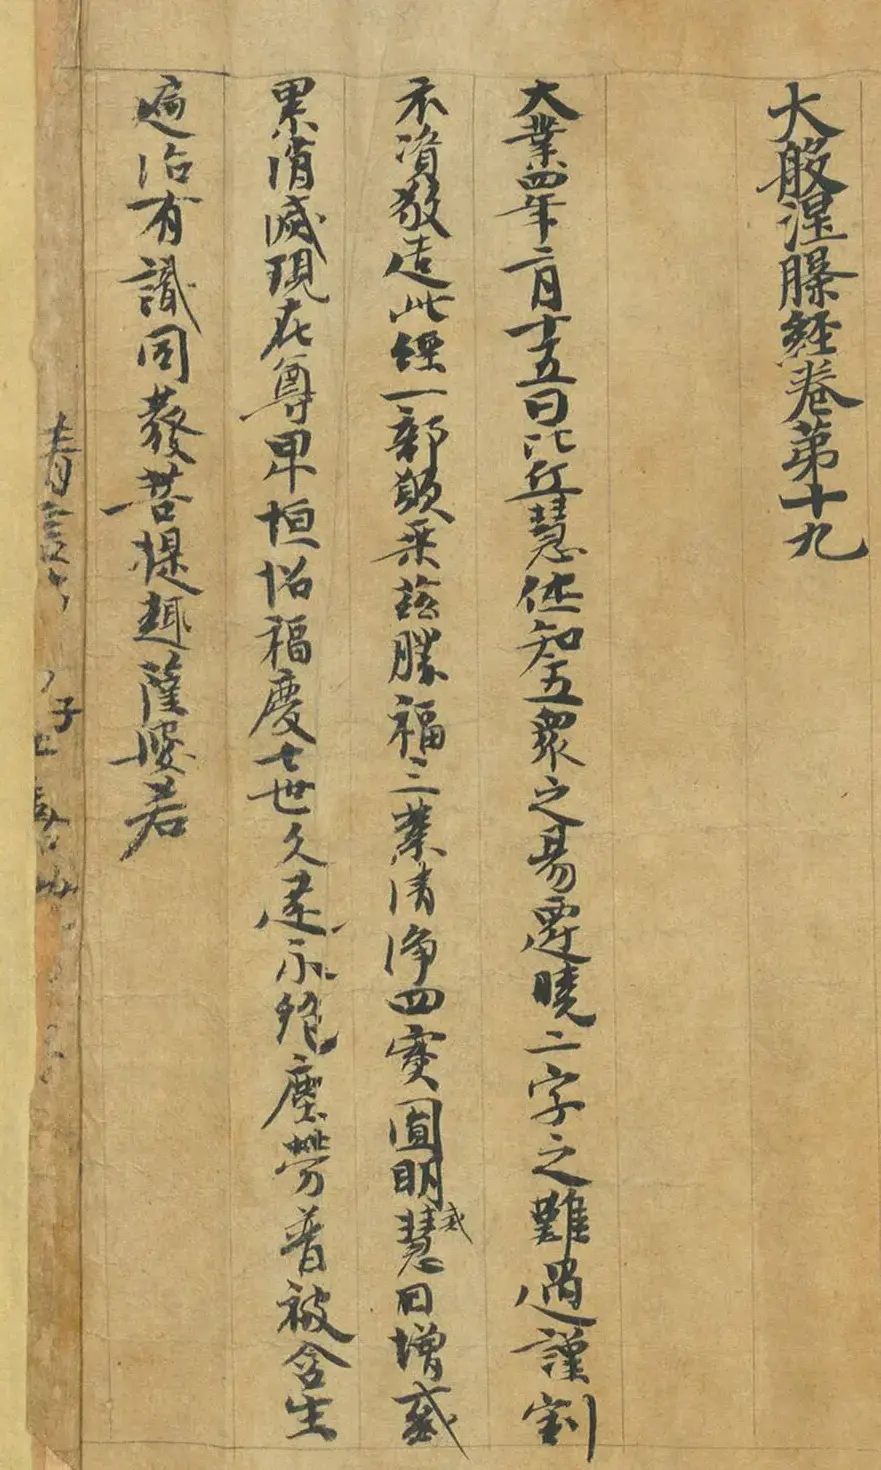 大般涅槃經卷第十九
大業四年二月十五日比丘慧休知五衆之易遷曉二字之難遇謹割
衣資敬造此經一部願乘茲勝福三業清淨四實圓明戒慧日增惑
累消滅現在尊卑恒招福慶七世久遠永絕塵勞普被含生
遍沾有識同發菩提趣薩婆若